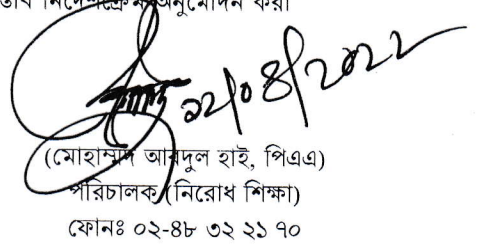 নির্দেশক্রমে অনুমোদন করা
১২/০৪/২০২২
(মোহাম্মদ আবদুল হাই, পিএএ)
পরিচালক (নিরোধ শিক্ষা)
ফোনঃ ০২-৪৮ ৩২ ২১ ৭০